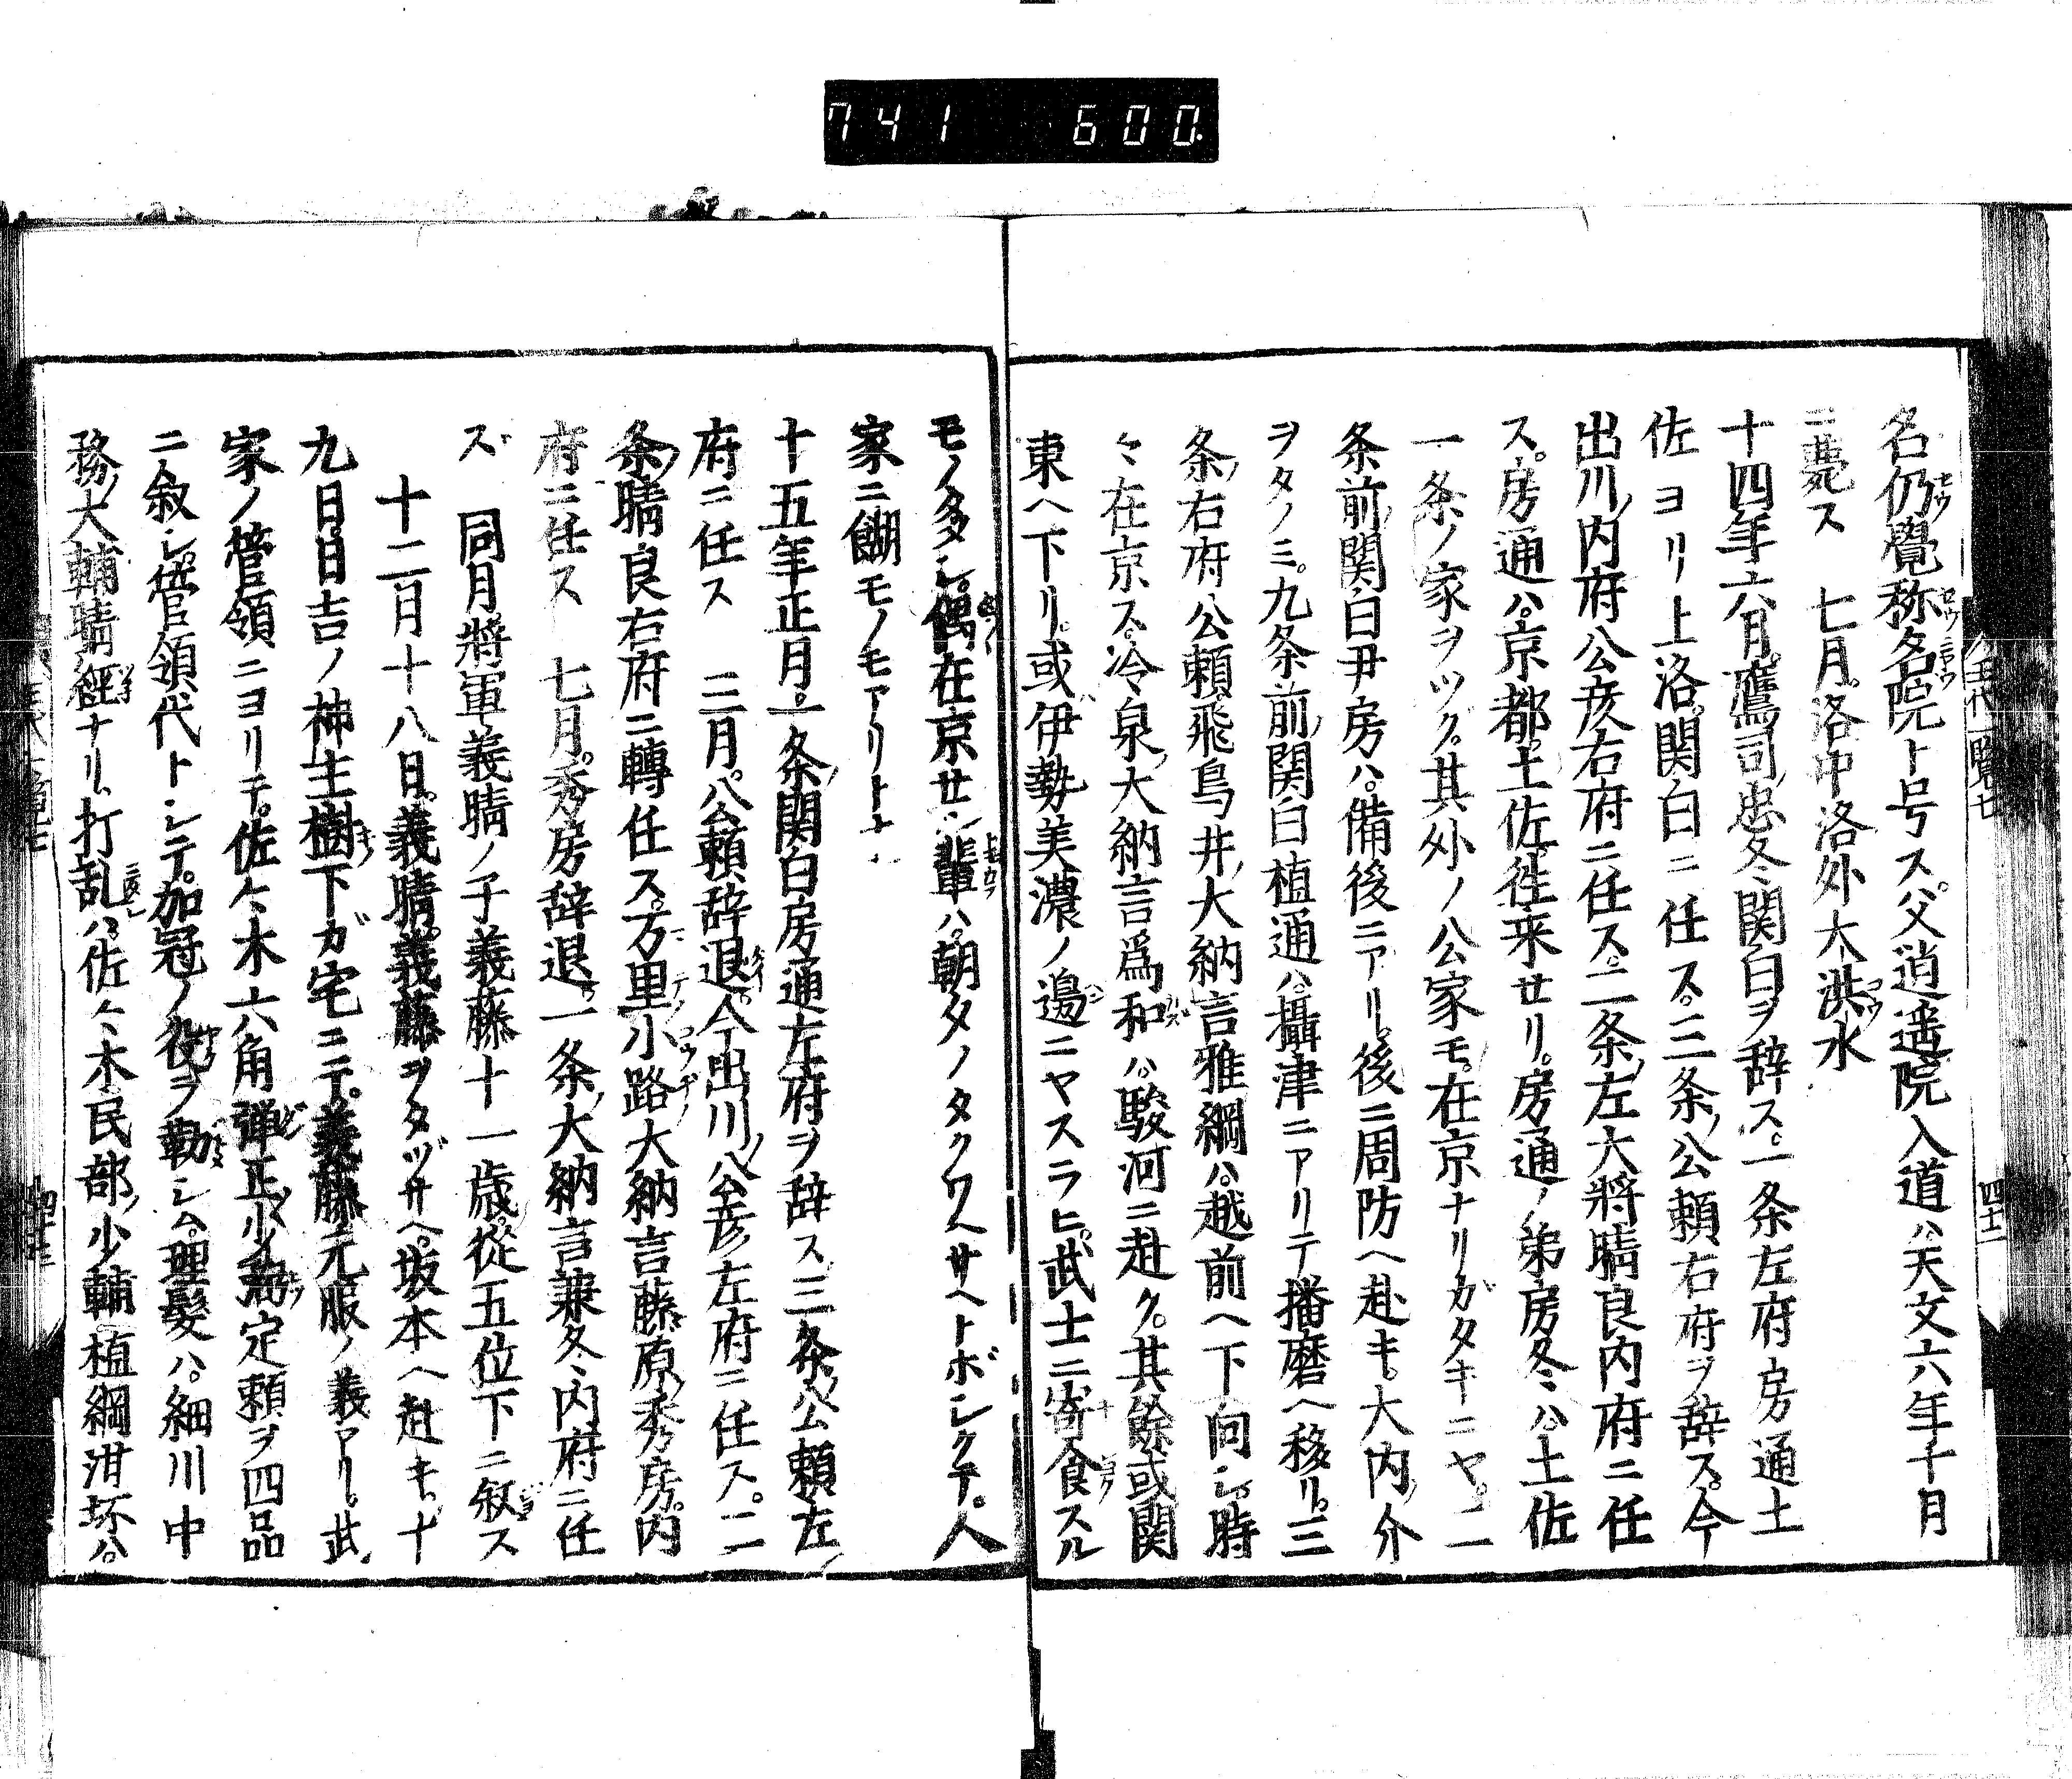 741 600
名仍覺称名院ト号ス。父逍遥院入道ハ天文六年十月
ニ薨ス 七月。洛中洛外大洪水
十四年六月。鷹司忠冬関白ヲ辞ス。一条左府房通土
佐ヨリ上洛。関白ニ任ス。三条公頼右府ヲ辞ス。今
出川内府公彦右府ニ任ス。二条左大將晴良内府ニ任
ス。房通ハ京都。土佐徃来セリ。房通ノ弟房冬ハ土佐
一条ノ家ヲツグ。其外ノ公家モ。在京ナリガタキニヤ。二
条前関白尹房ハ。備後ニアリ。後ニ周防ヘ赴キ。大内介
ヲタノミ。九条前関白植通ハ。攝津ニアリテ播磨ヘ移リ。三
条右府公頼飛鳥井大納言雅綱ハ。越前ヘ下向シ。時
々在京ス。冷泉大納言爲和ハ。駿河ニ赴ク。其餘或関
東ヘ下リ。或伊勢美濃ノ邊ニヤスラヒ。武士ニ寄食スル
モノ多シ。偶在京セシ輩ハ。朝夕ノタクワヘサヘトボシクテ。人
家ニ餬モノモアリトナ
十五年正月。一条関白房通左府ヲ辞ス 三条公頼左
府ニ任ス 三月。公頼辞退。今出川公彦左府ニ任ス。二
条晴良右府ニ轉任ス。万里小路大納言藤原秀房。内
府ニ任ス 七月。秀房辞退。一条大納言兼冬内府ニ任
ズ 同月將軍義晴ノ子義藤十一歳。從五位下ニ叙ス
十二月十八日。義晴。義藤ヲタヅサヘ。坂本ヘ赴キ。十
九日。日吉ノ神主樹下ガ宅ニテ。義藤元服ノ義アリ。武
家ノ管領ニヨリテ。佐々木六角弾正少弼定頼ヲ四品
ニ叙シ。管領代トシテ。加冠ノ役ヲ勤シム。理髪ハ。細川中
務大輔晴經ナリ。打乱ハ。佐々木民部少輔植綱泔坏ハ。